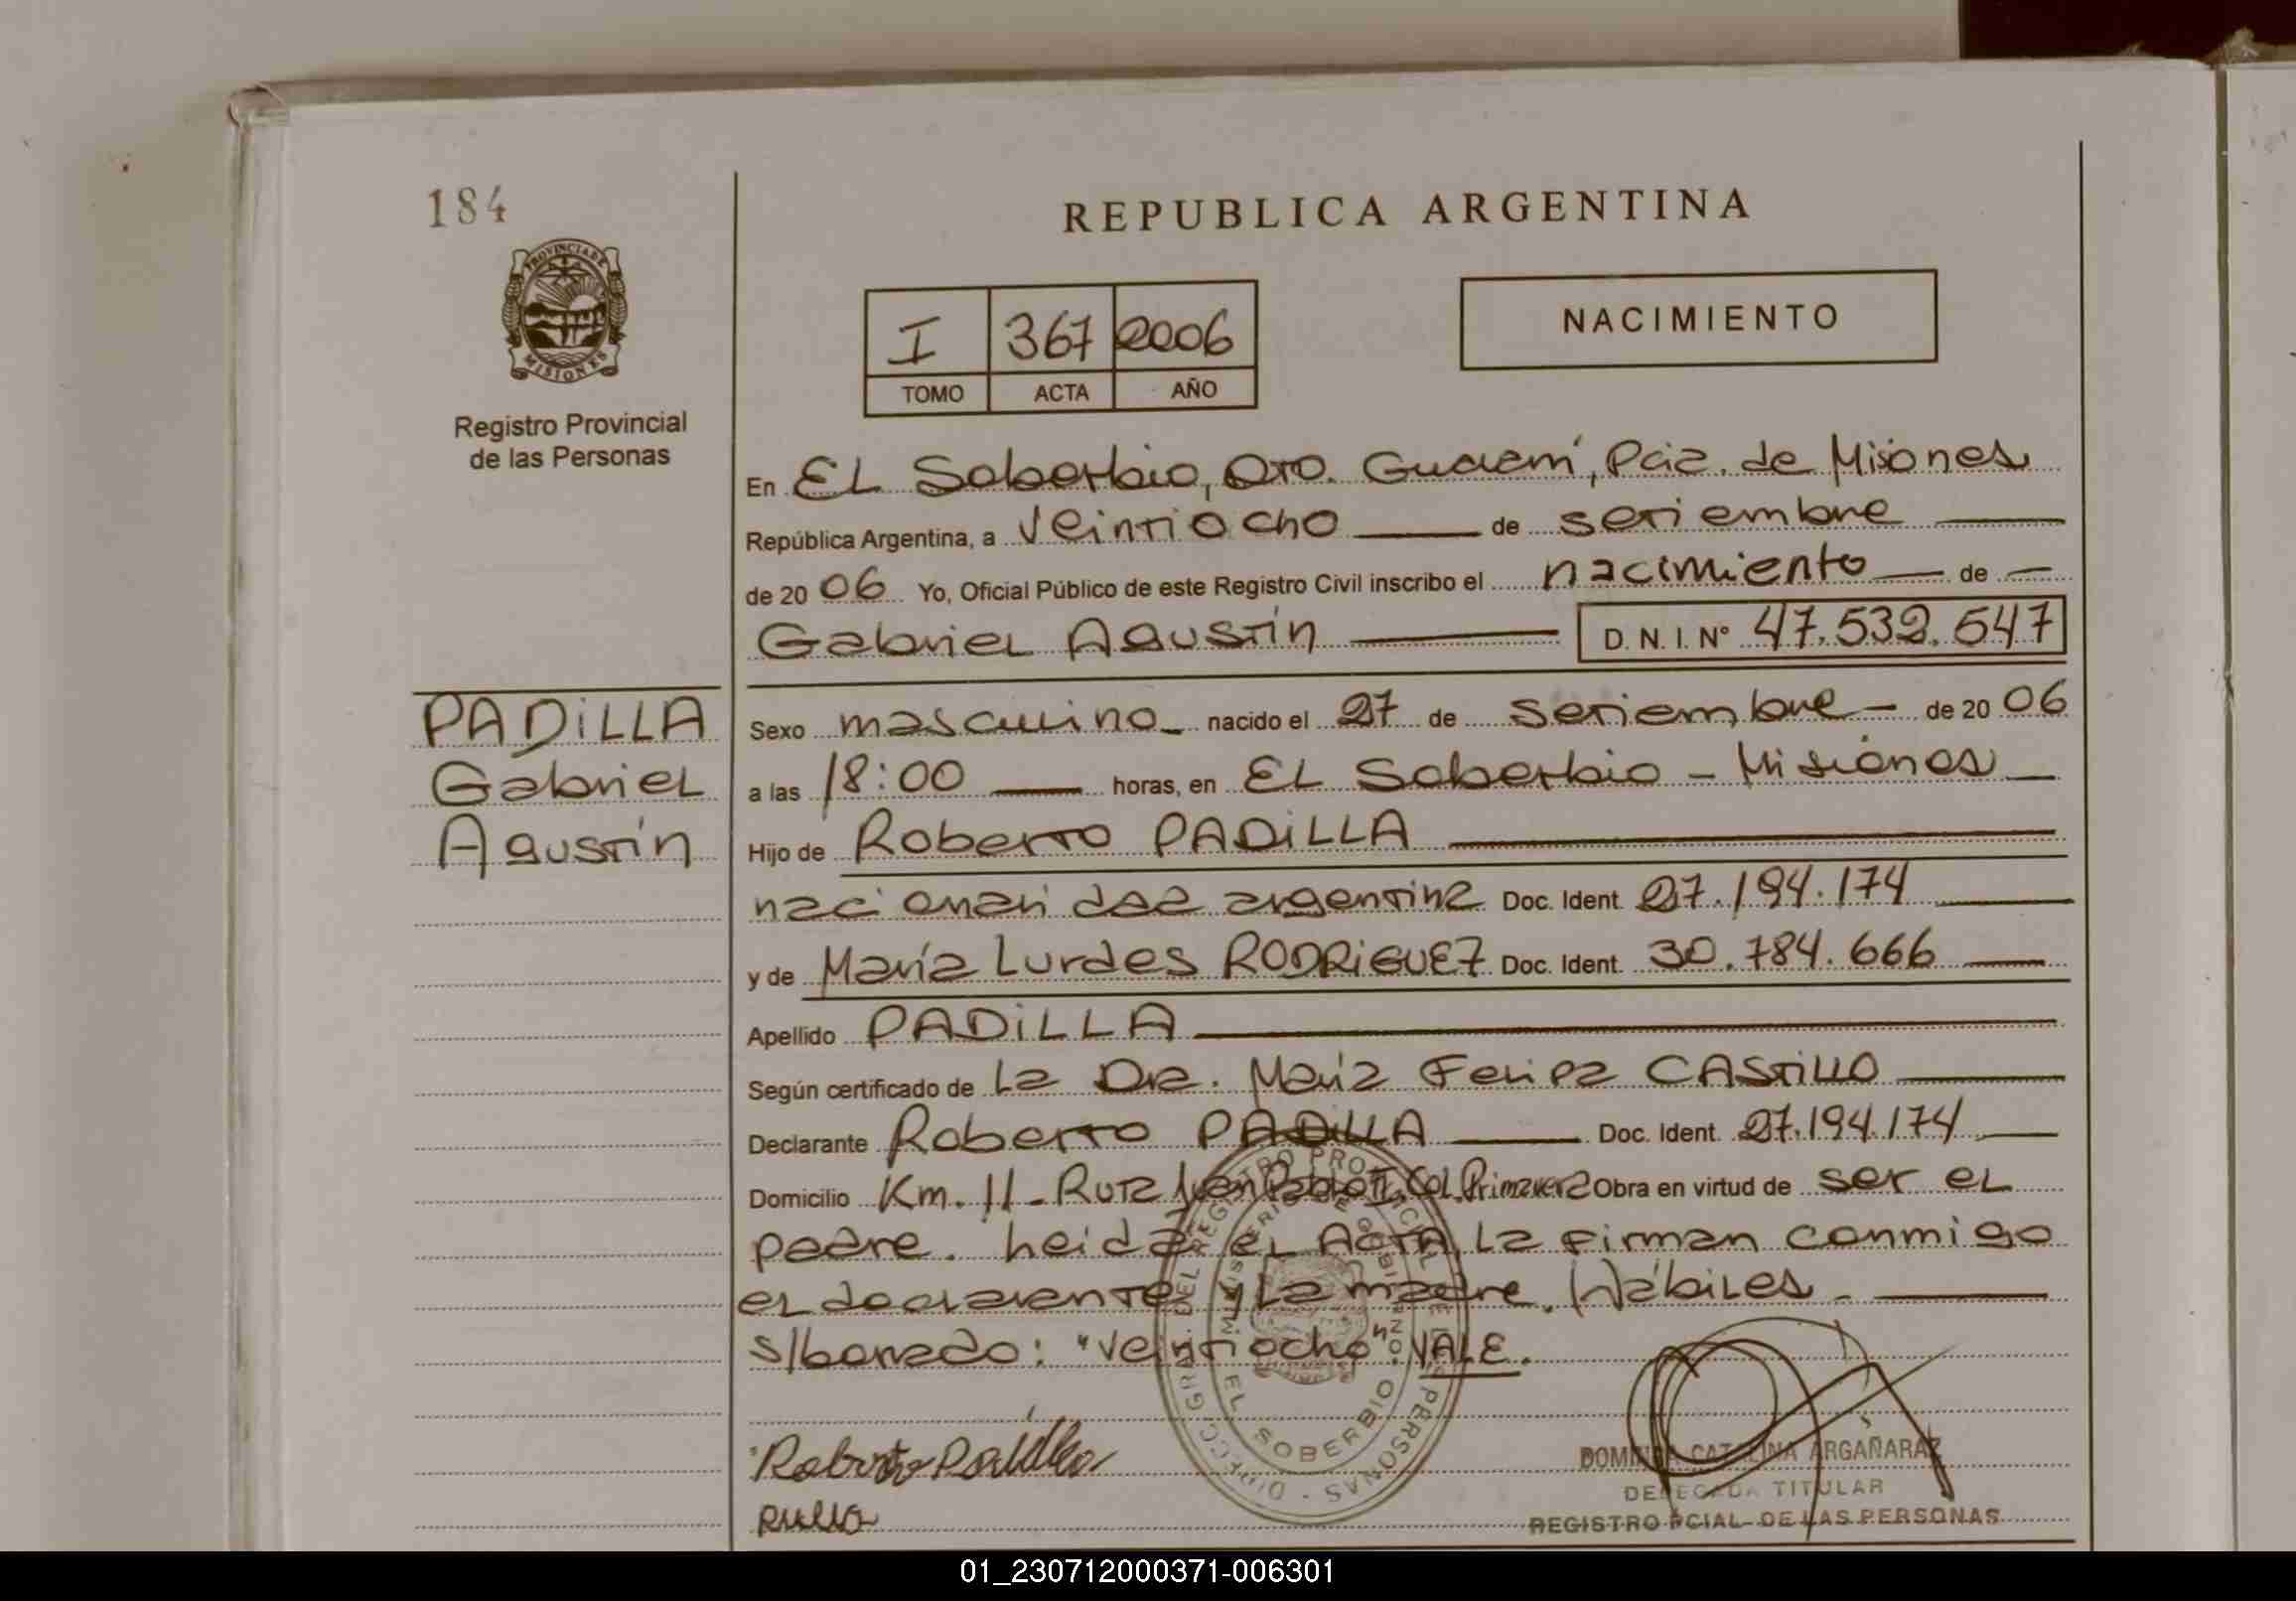 184
PROVINCIA DE
MISIONES
Registro Provincial
de las Personas
REPUBLICA ARGENTINA
I 367 2006
TOMO ACTA AÑO
NACIMIENTO
En EL Soberbio, Dto. Guaraní, Pcia. de Misiones
República Argentina, a Veintiocho de setiembre
de 20 06 Yo, Oficial Público de este Registro Civil inscribo el nacimiento de
Gabriel Agustín D. N. I. Nº 47.532.547
PADiLLA
Gabriel
Agustín
Sexo masculino nacido el 27 de setiembre de 20 06
a las 18:00 horas, en EL Soberbio - Misiones
Hijo de Roberto PADiLLA
nacionalidad argentina Doc. Ident. 27.194.174
y de María Lurdes RODRiGUEZ Doc. Ident. 30.784.666
Apellido PADiLLA
Según certificado de La Dra. María Felipa CASTiLLO
Declarante Roberto PADiLLA Doc. Ident. 27.194.174
Domicilio Km. 11 - Ruta Juan Pablo II, Col. Primavera Obra en virtud de ser el
padre. Leída el ACTA, la firman conmigo
el declarante y la madre. Hábiles.
s/borrado: "Veintiocho". VALE.
DIRECC. GRAL. DEL REGISTRO PROVINCIAL DE LAS PERSONAS
MINISTERIO DE GOBIERNO
EL SOBERBIO
Roberto Padilla
DOMINGA CATALINA ARGAÑARAZ
DELEGADA TITULAR
REGISTRO PCIAL. DE LAS PERSONAS
01_230712000371-006301